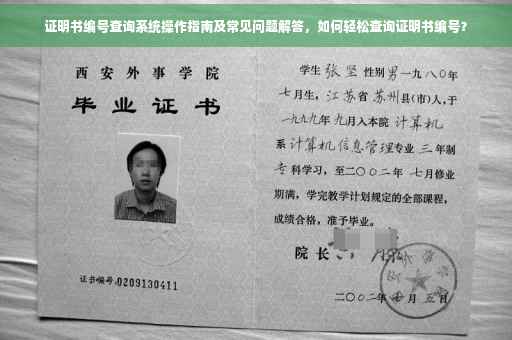 证明书编号查询系统操作指南及常见问题解答，如何轻松查询证明书编号？
西安外事学院
毕业证书
证书编号:0209130411
学生张坚性别男一九八〇年
七月生，江苏省苏州县(市)人,于
一九九九年九月入本院计算机
系计算机信息管理专业三年制
专科学习，至二〇〇二年七月修业
期满，学完教学计划规定的全部课程，
成绩合格，准予毕业。
院长
二〇〇二年 月五日